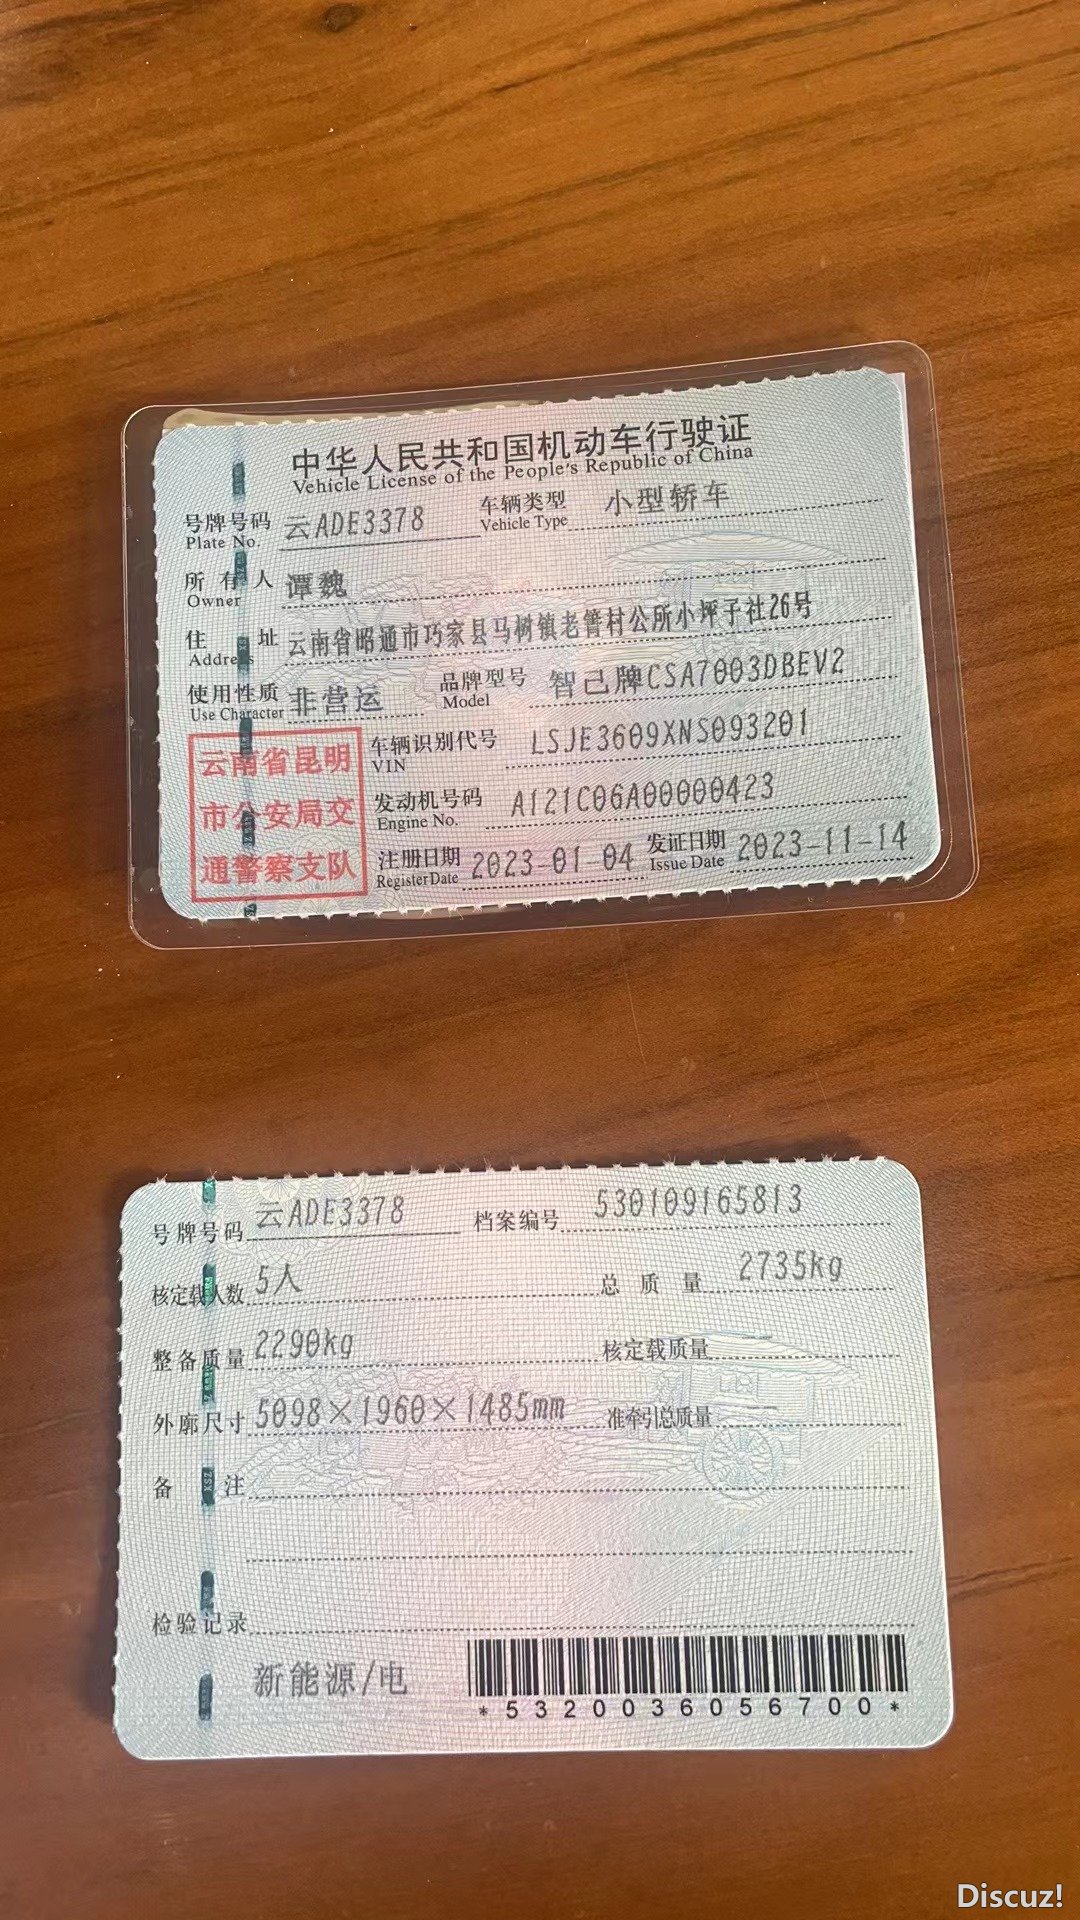 中华人民共和国机动车行驶证
Vehicle License of the People's Republic of China
号牌号码 云ADE3378 车辆类型 小型轿车
Plate No. Vehicle Type
所有人 谭魏
Owner
住址 云南省昭通市巧家县马树镇老箐村公所小坪子社26号
Address
使用性质 非营运 品牌型号 智己牌CSA7003DBEV2
Use Character Model
云南省昆明
市公安局交
通警察支队
车辆识别代号 LSJE3609XNS093201
VIN
发动机号码 A121C06A00000423
Engine No.
注册日期 2023-01-04 发证日期 2023-11-14
Register Date Issue Date
号牌号码 云ADE3378 档案编号 530109165813
核定载人数 5人 总质量 2735kg
整备质量 2290kg 核定载质量
外廓尺寸 5098×1960×1485mm 准牵引总质量
备注
检验记录
新能源/电
*5320036056700*
Discuz!